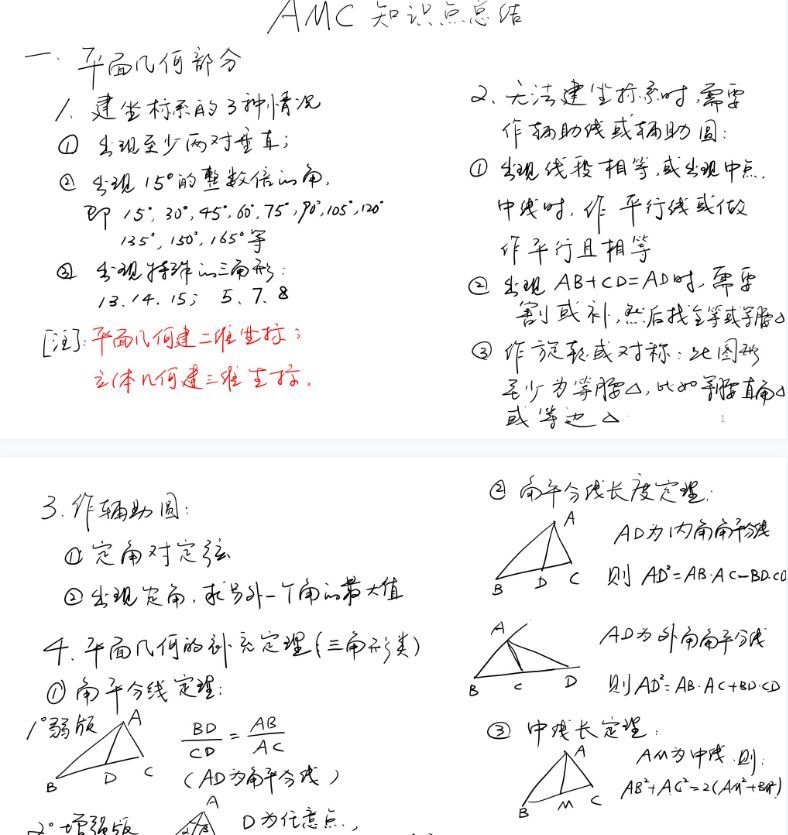 AMC 知识点总结
一、平面几何部分
1、建坐标系的3种情况
① 出现至少两对垂直;
② 出现15°的整数倍的角,
即 15°, 30°, 45°, 60°, 75°, 90°, 105°, 120°
135°, 150°, 165°等
③ 出现特殊的三角形:
13. 14. 15; 5、7、8
[注]: 平面几何建二维坐标;
立体几何建三维坐标。
2、无法建坐标系时,需要
作辅助线或辅助圆:
① 出现线段相等,或出现中点,
中线时,作平行线或做
作平行且相等
② 出现 AB+CD=AD时,需要
割或补,然后找全等或等腰△
③ 作旋转或对称:此图形
至少为等腰△,比如等腰直角△
或等边△
1
3. 作辅助圆:
① 定角对定弦
② 出现定角,求另外一个角的最大值
4. 平面几何的补充定理(三角形类)
① 角平分线定理:
1° 弱版
A
B D C
BD/CD = AB/AC
(AD为角平分线)
2° 增强版
A
D为任意点,
② 角平分线长度定理:
A
B D C
AD为内角角平分线
则 AD²=AB·AC-BD·CD
A
B C D
AD为外角角平分线
则 AD²=AB·AC+BD·CD
③ 中线长定理:
A
B M C
AM为中线,则:
AB²+AC²=2(AM²+BM²)